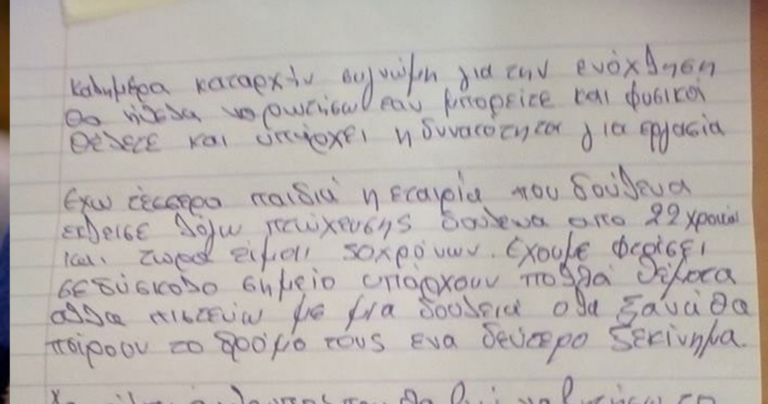 καλημέρα καταρχήν συγνώμη για την ενόχληση
θα ήθελα να ρωτήσω εαν μπορείτε και φυσικά
θέλετε και υπάρχει η δυνατότητα για εργασία
Εχω τέσσερα παιδιά η εταιρία που δούλευα
εκλεισε λόγω πτώχευσης δούλευα απο 22 χρονών
και τωρα είμαι 50χρόνων. έχουμε φτάσει
σε δύσκολο σημείο υπάρχουν πολλά θέματα
αλλα πιστεύω με μια δουλειά ολα ξανά θα
πάρουν το δρόμο τους ενα δεύτερο ξεκίνημα.